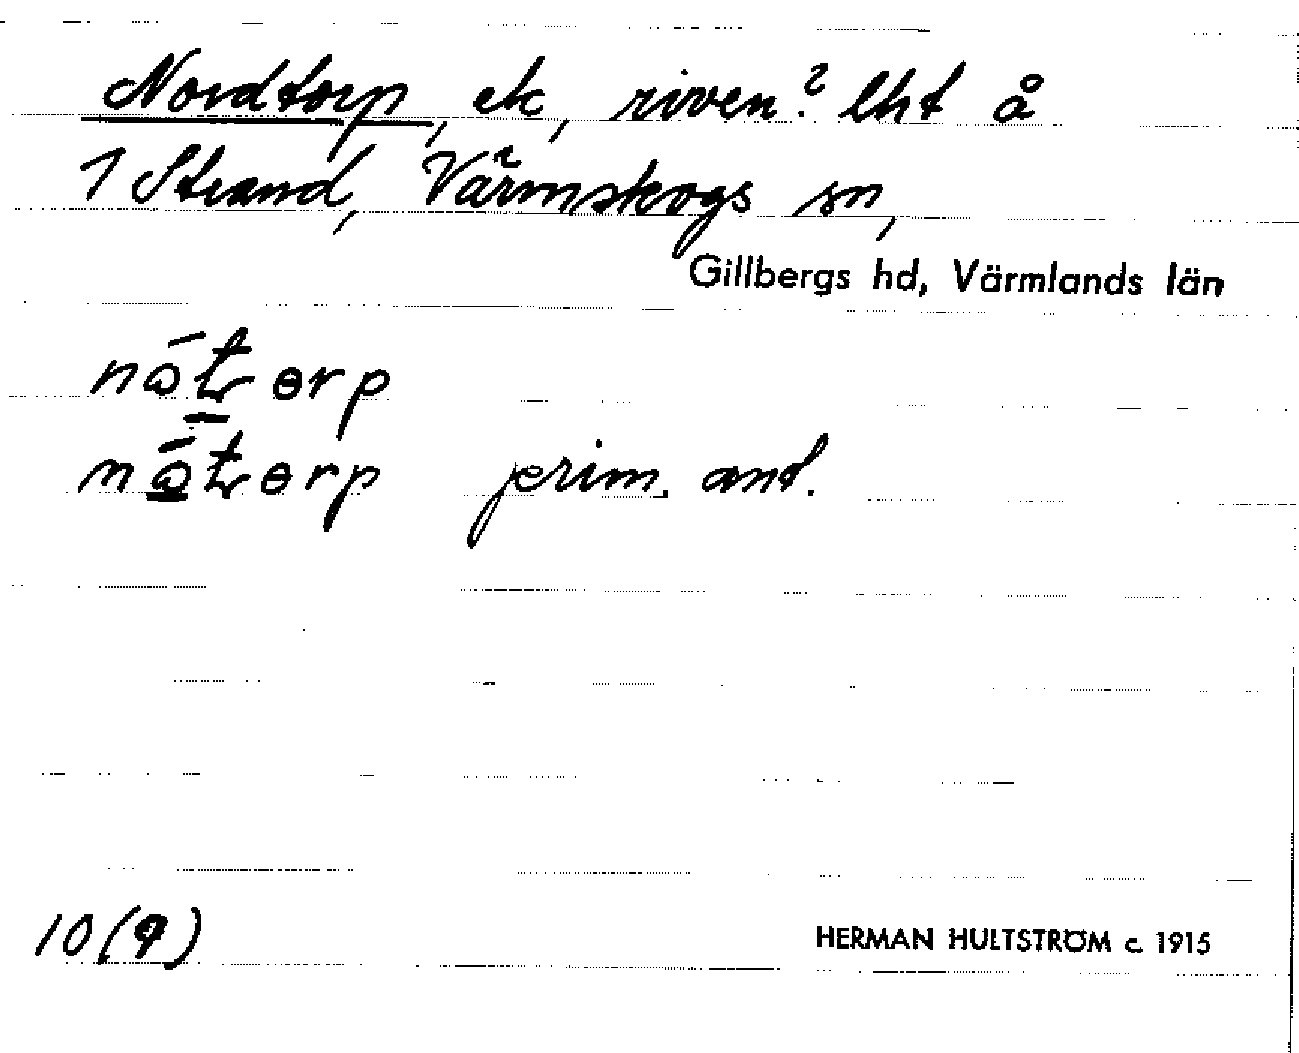 Nordtorp, ek, riven? lht å
1 Strand, Värmskogs sn,
Gillbergs hd, Värmlands län
nótɵrp
nótɵrp prim. ant.
10 (9)
HERMAN HULTSTRÖM c. 1915